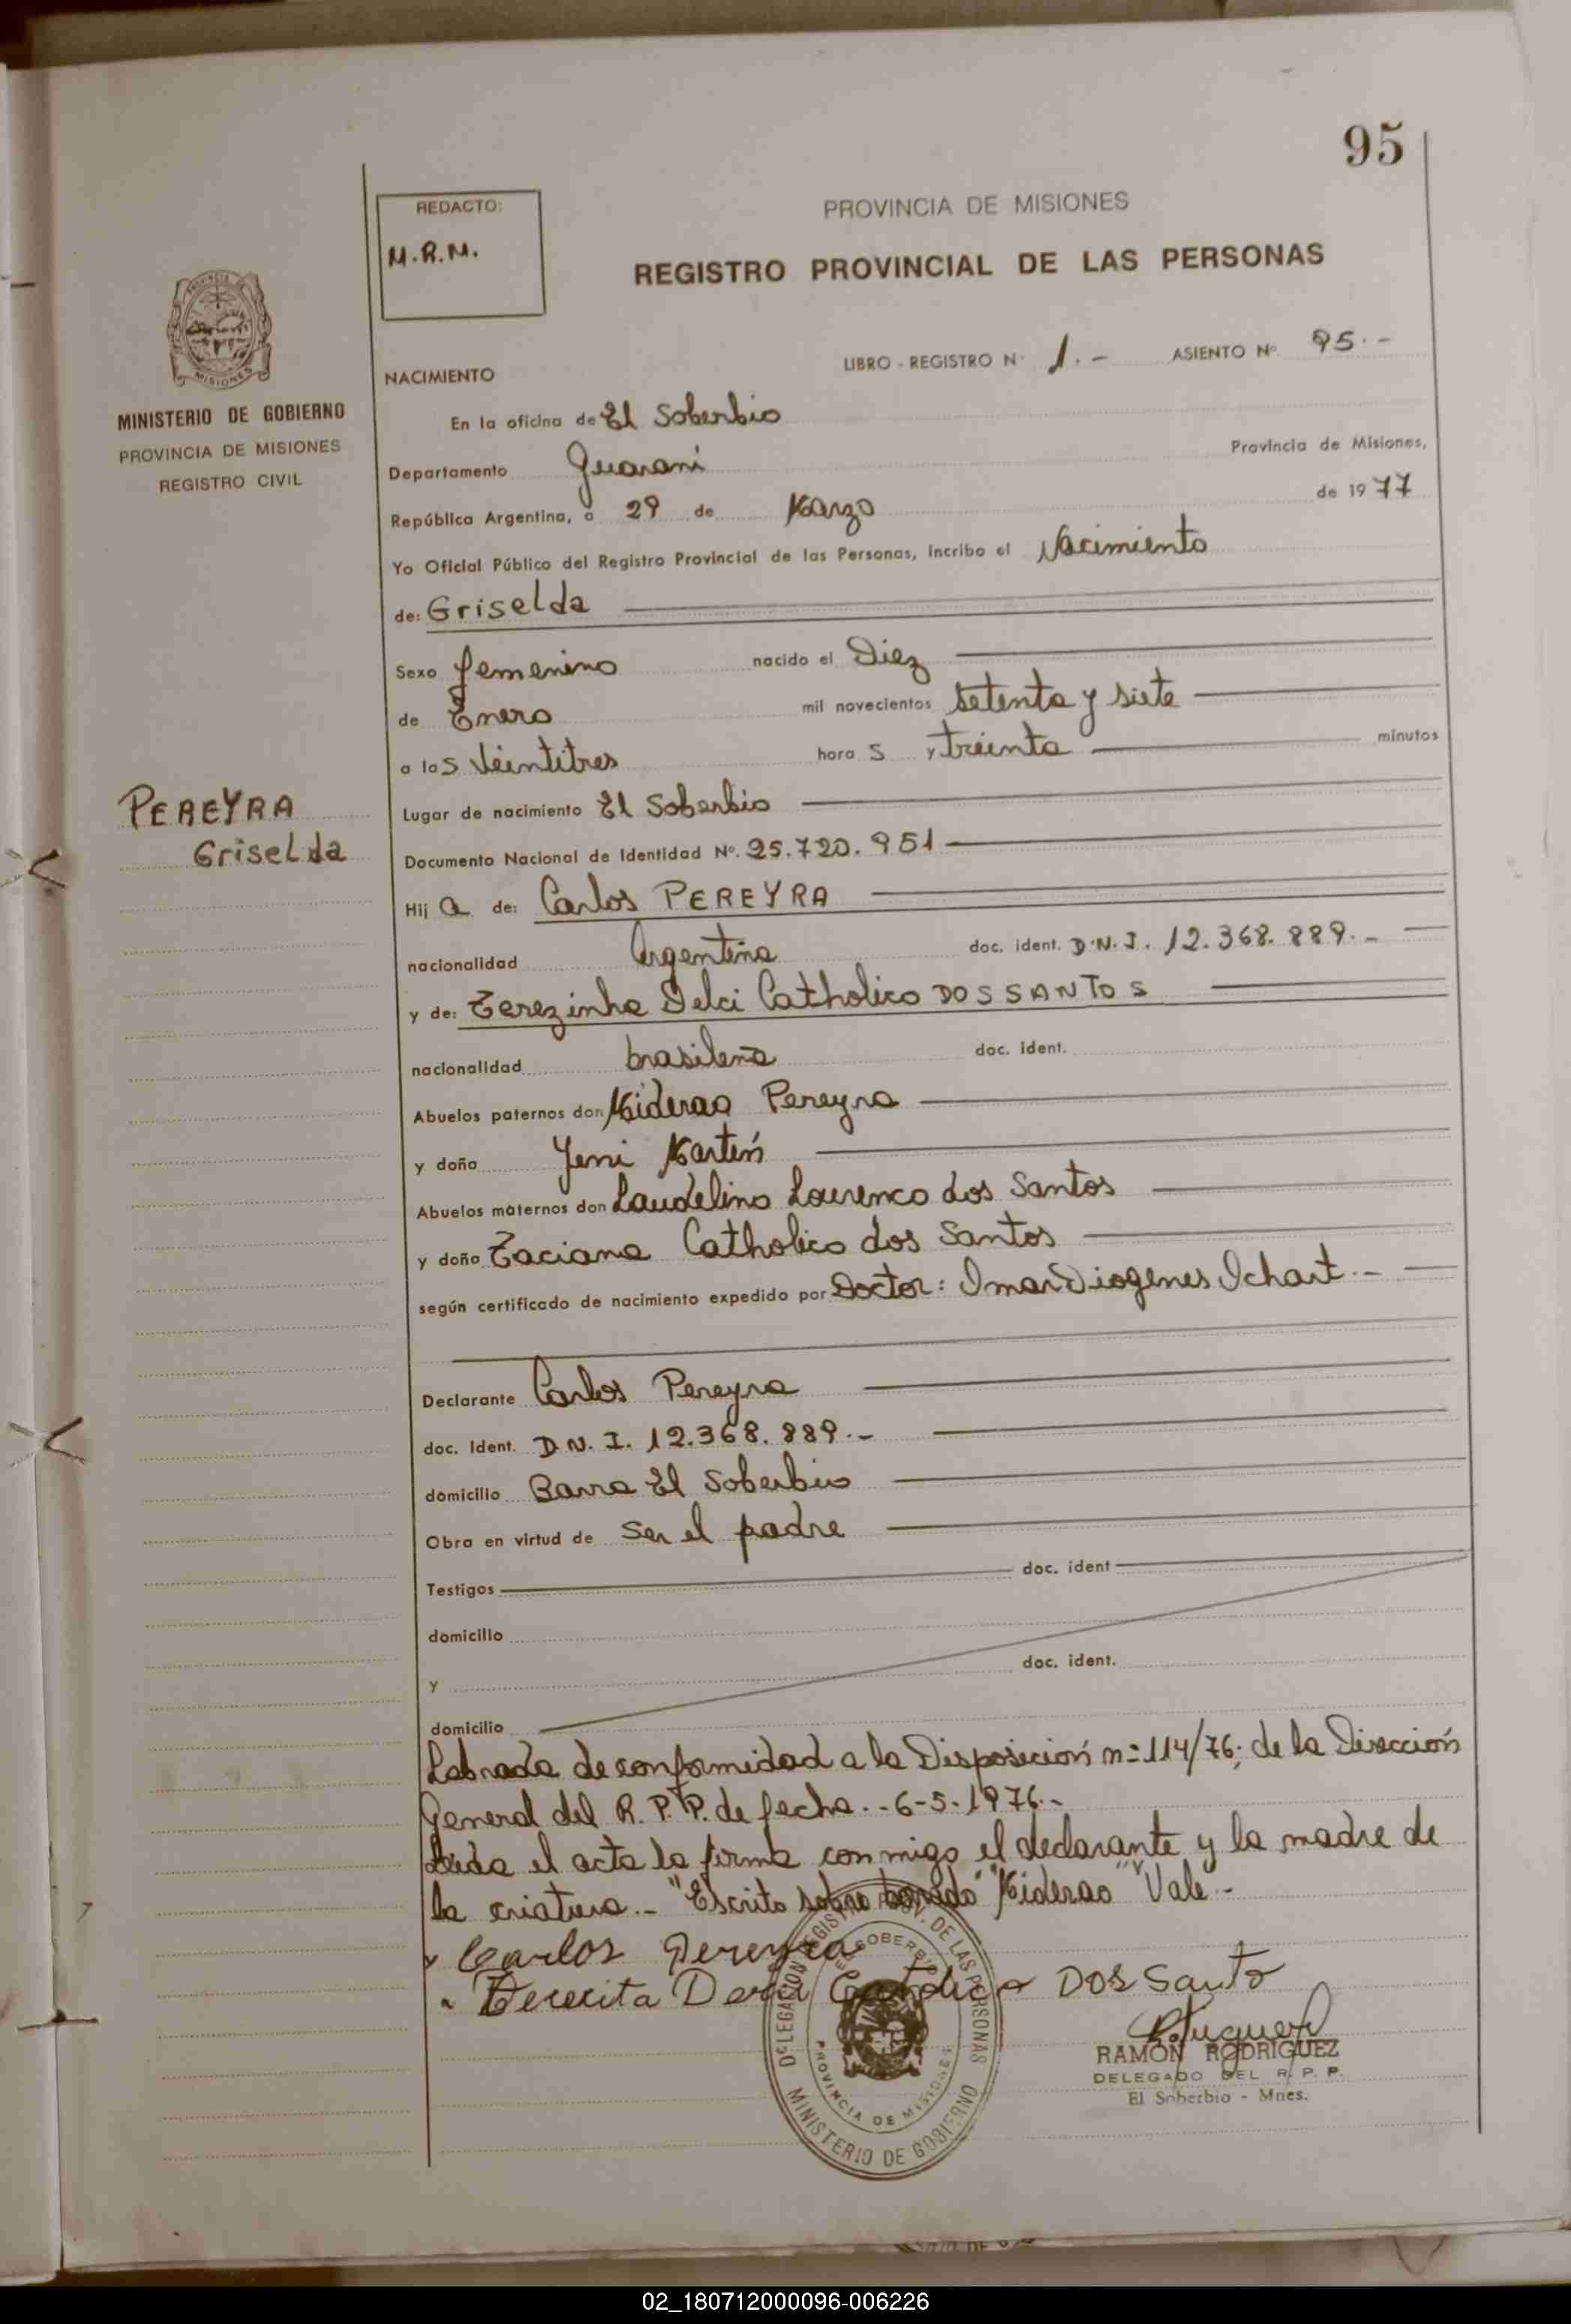 95
REDACTO:
M.R.M.
PROVINCIA DE MISIONES
REGISTRO PROVINCIAL DE LAS PERSONAS
MISIONES
MINISTERIO DE GOBIERNO
PROVINCIA DE MISIONES
REGISTRO CIVIL
LIBRO - REGISTRO N° 1.- ASIENTO N° 95.-
NACIMIENTO
En la oficina de El Soberbio
Departamento Guaraní Provincia de Misiones,
República Argentina, a 29 de Marzo de 1977
Yo Oficial Público del Registro Provincial de las Personas, incribo el Nacimiento
de: Griselda
Sexo femenino nacido el Diez
de Enero mil novecientos setenta y siete
a las Veintitres hora s y treinta minutos
PEREYRA
Griselda
Lugar de nacimiento El Soberbio
Documento Nacional de Identidad N°. 25.720.951
Hij a de: Carlos PEREYRA
nacionalidad Argentina doc. ident. D.N.I. 12.368.889.-
y de: Terezinha Delci Catholico DOS SANTOS
nacionalidad brasileña doc. ident.
Abuelos paternos don Miderao Pereyra
y doña Yeni Martín
Abuelos maternos don Laudelino Lourenco dos Santos
y doña Taciana Catholico dos Santos
según certificado de nacimiento expedido por Doctor: Imar Diogenes Ichart.-
Declarante Carlos Pereyra
doc. Ident. D.N.I. 12.368.889.-
domicilio Barra El Soberbio
Obra en virtud de ser el padre
Testigos doc. ident
domicilio
y doc. ident.
domicilio
Labrada de conformidad a la Disposición n=114/76; de la Dirección
General del R.P.P. de fecha.-6-5-1976.-
Leida el acta la firma conmigo el declarante y la madre de
la criatura.- "Escrito sobre borrado" "Miderao" "Vale.-
Carlos Pereyra
Terecita Derci Catolica Dos Santo
RAMON RODRIGUEZ
DELEGADO DEL R. P. P.
El Soberbio - Mnes.
DELEGACION REGISTRO PROV. DE LAS PERSONAS
EL SOBERBIO
PROVINCIA DE MISIONES
MINISTERIO DE GOBIERNO
02_180712000096-006226